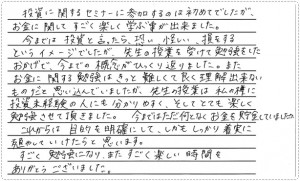 投資に関するセミナーに参加するのは初めてでしたが、
お金に関してすごく楽しく学ぶ事が出来ました。
今までは投資と言ったら、恐い、怪しい、損をする
というイメージでしたが、先生の授業を受けて勉強をした
おかげで、今までの概念がひっくり返りました。また
お金に関する勉強はきっと難しくて良く理解出来ない
ものだと思い込んでいましたが、先生の授業は私の様に
投資未経験の人にも分かりやすく、そしてとても楽しく
勉強させて頂きました。今まではただ何となくお金を貯金していましたが
これからは目的を明確にして、しかもしっかり着実に
組めていけたらと思います。
すごく勉強になり、またすごく楽しい時間を
ありがとうございました。